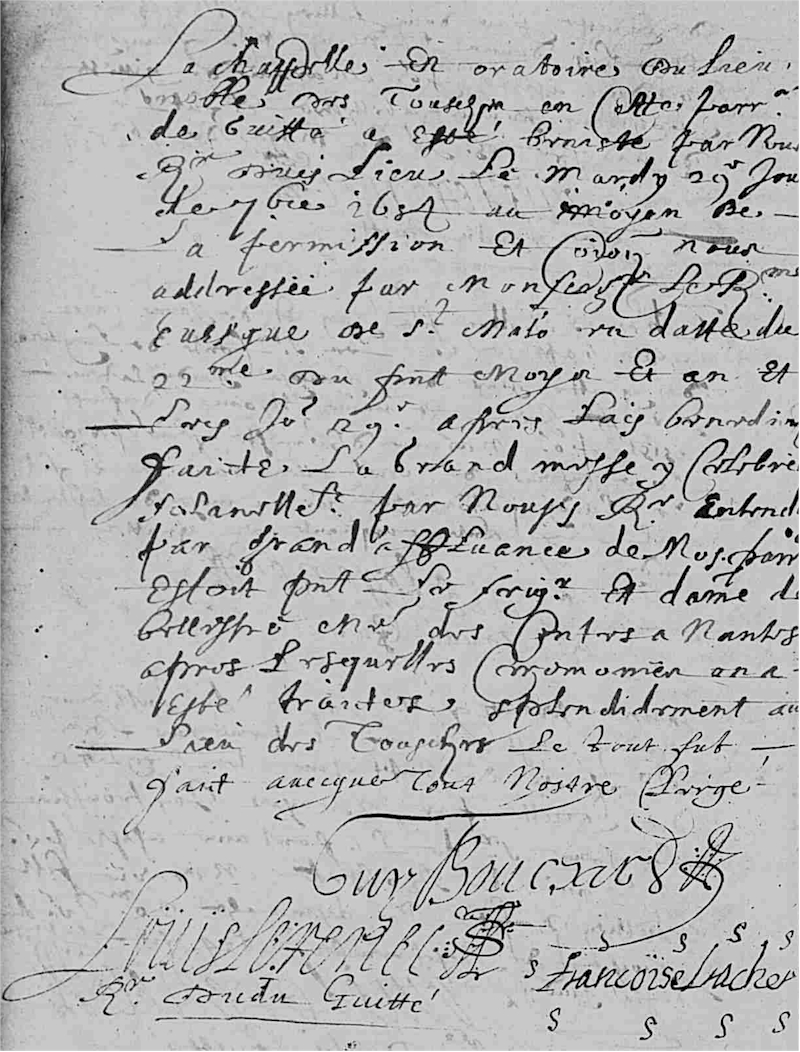 La chappelle et oratoire du lieu
noble des Tousches en Cette parr
de Guitté a esté beniste par Nous
Rr dudit Lieu Le mardy 29e Jou
de 7bre 1682 au moyen de
La permission Et nous
addressée par Monseigr Le R.me
Euesque de St Malo en datte du
22me du pnt Moys Et an Et
29e apres
faitte La Grand messe y Celebrée
solanellet par Nous Rr Entend
par grand affluance de Nos parr
Estoit pnt Le seigr Et dame de
bellestre Me des Contes a Nantes
apres Lesquelles Ceremonies on a
Esté traittés splendidement au
Lieu des Tousches Le tout fut
faict auecque tout Nostre Clergé
Guy Bouexard
Louis
Françoise Lvacher
Rr dudit Guitté